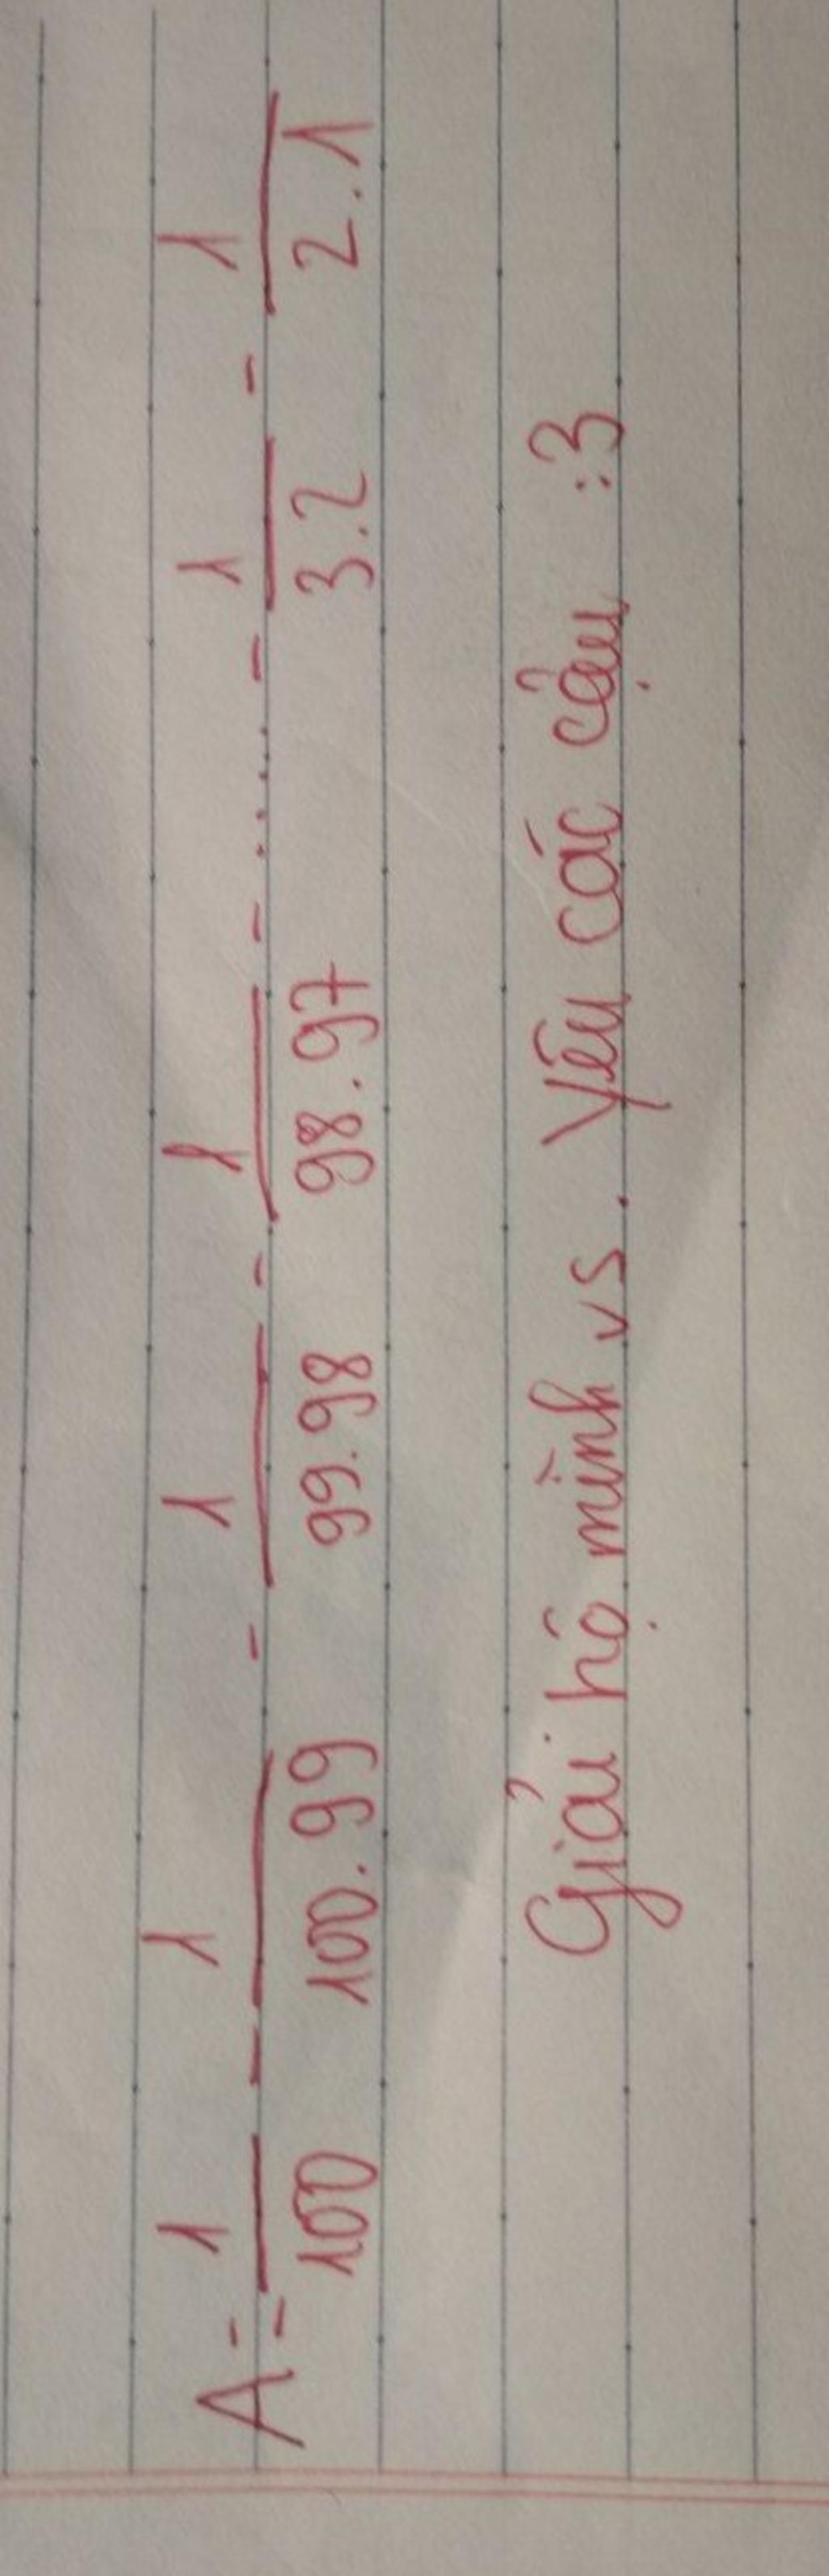 A = 1/100 - 1/100.99 - 1/99.98 - 1/98.97 - ..... - 1/3.2 - 1/2.1
Giải hộ mình vs. Yêu các cậu :3